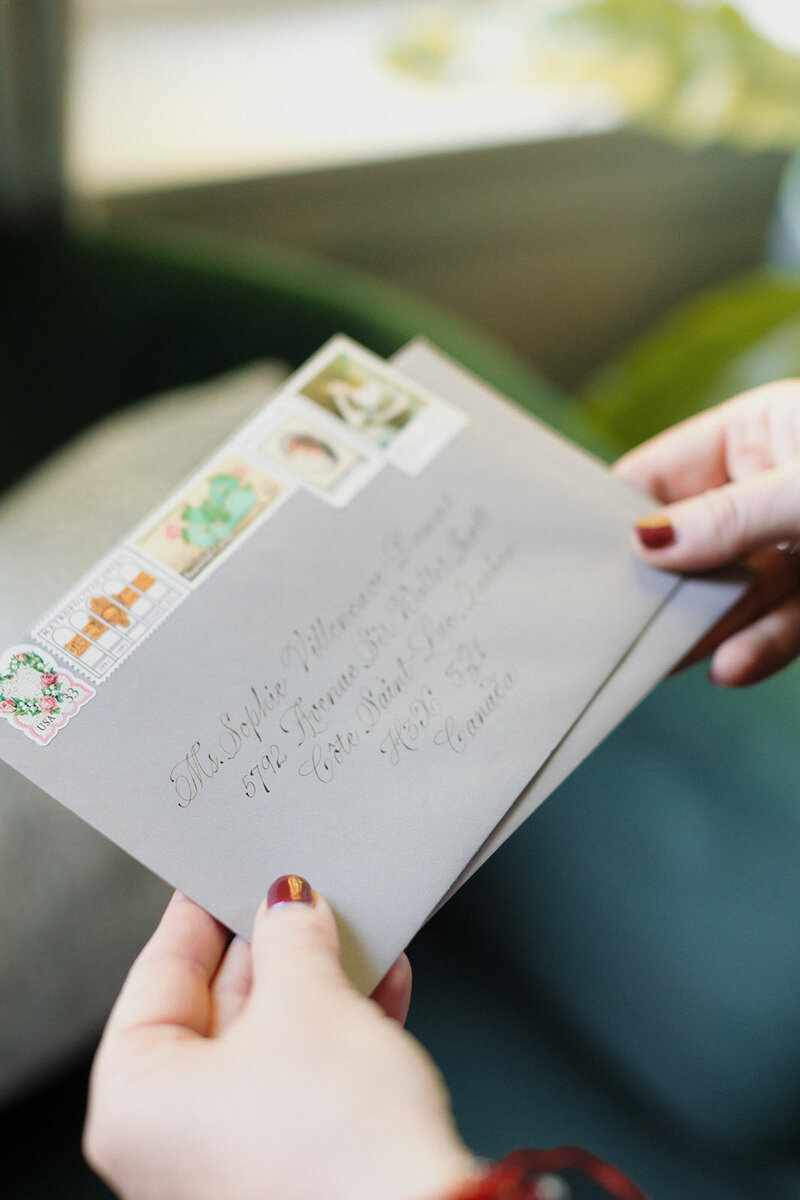 USA 33
Ms. Sophie Villeneuve
5792 Avenue Sir Walter Scott
Côte Saint-Luc, Quebec
H3X
Canada